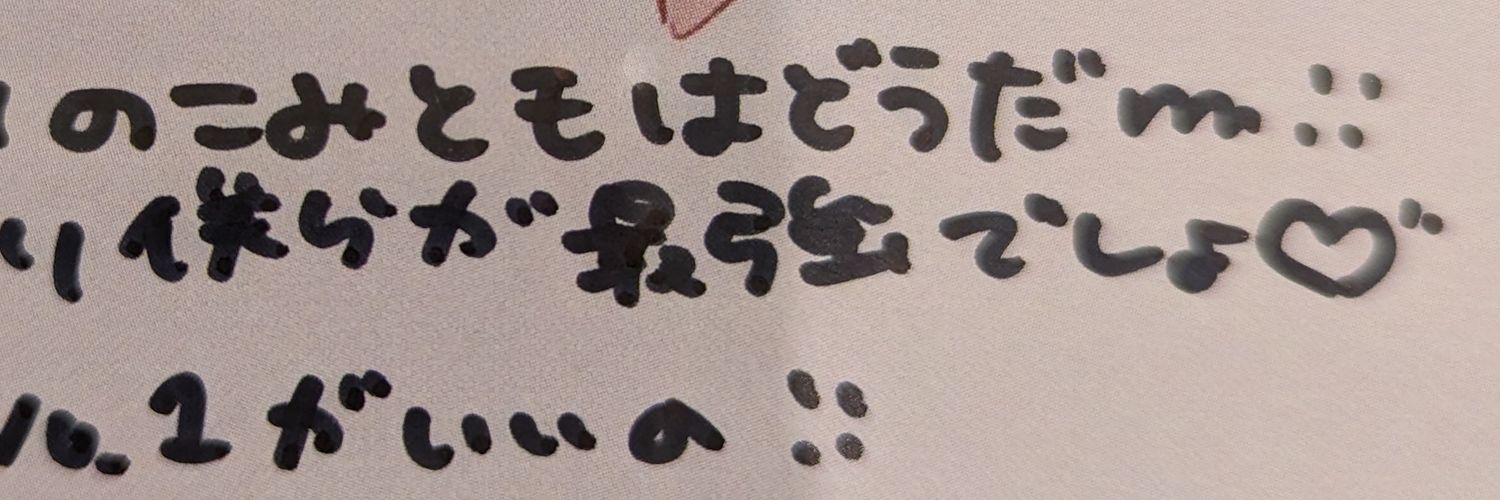 のこみともはどうだm ::
り僕らが最強でしょ♡゛
No.1がいいの ::